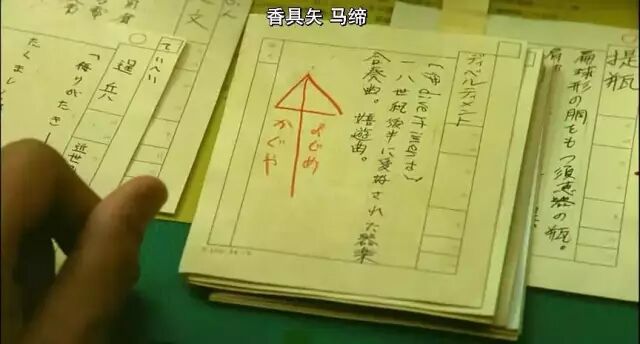 香具矢 马缔
提瓶
扁球形の胴をもつ須恵器の瓶。
ディベルティメント
(伊 divertimento)
一八世紀後半に愛好された器楽
合奏曲。嬉遊曲。
まじめ
かぐや
文
ていへい